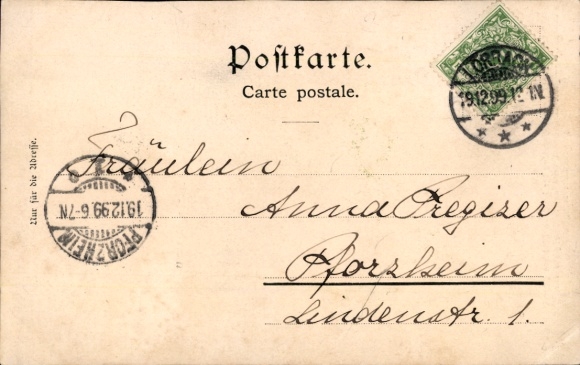 Postkarte.
Carte postale.
LÖRRACH
19.12.99.12-1N.
Nur für die Adresse.
Fräulein
Anna Pregizer
Pforzheim
Lindenstr. 1.
PFORZHEIM
19.12.99.6-7N.